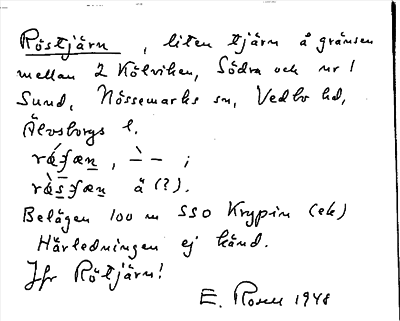 Röstjärn, liten tjärn å gränsen
mellan 2 Kölviken, Södra och nr 1
Sund, Nössemarks sn, Vedbo hd,
Älvsborgs l.
Belägen 100 m SSO Krypin (ek)
Härledningen ej känd.
Jfr Rötjärn!
E. Rosell 1948